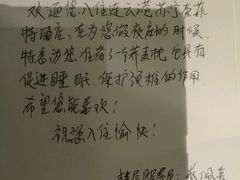 欢迎您入住连云港苏宁索菲
特酒店，在为您做夜床的时候，
特意为您准备了一个荞麦枕，它具有
促进睡眠、保护颈椎的作用
希望您能喜欢！
祝您入住愉快！
楼层服务员：